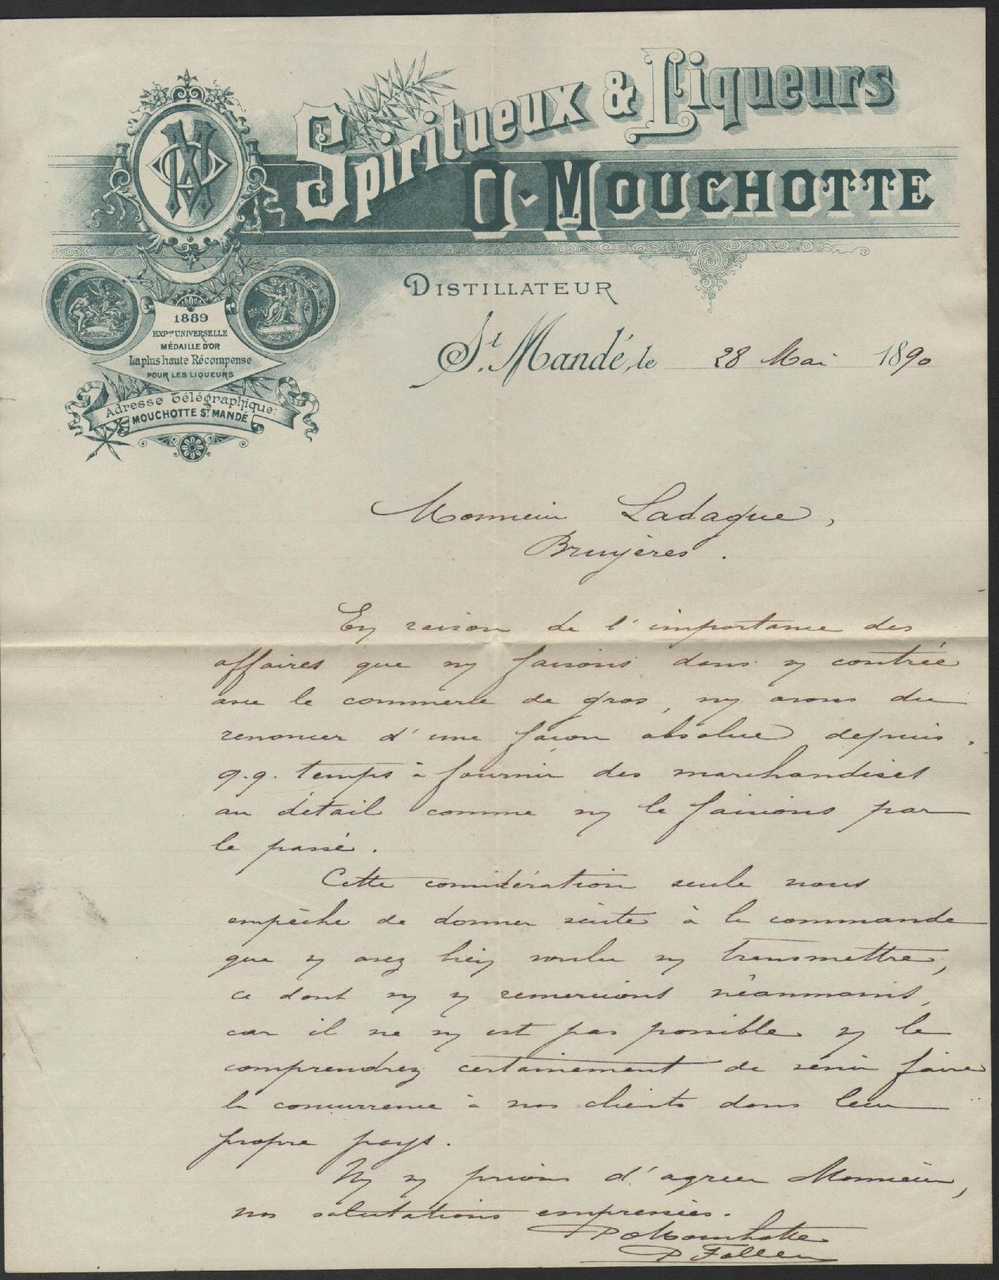 Spiritueux & Liqueurs
O. MOUCHOTTE
DISTILLATEUR
1889
EXPon UNIVERSELLE
MÉDAILLE D'OR
La plus haute Récompense
POUR LES LIQUEURS
Adresse Télégraphique:
MOUCHOTTE St MANDÉ
St. Mandé, le 28 Mai 1890
Monsieur Ladague,
Bruyères.
En raison de l'importance des
affaires que ns faisons dans v contrée
avec le commerce de gros, ns avons du
renoncer d'une façon absolue depuis
q.q. temps à fournir des marchandises
au détail comme ns le faisions par
le passé.
Cette considération seule nous
empêche de donner suite à la commande
que v avez bien voulu ns transmettre,
ce dont ns v remercions néanmoins,
car il ne ns est pas possible v le
comprendrez certainement de venir faire
la concurrence à nos clients dans leur
propre pays.
Ns v prions d'agréer Monsieur,
nos salutations empressées.
P O Mouchotte